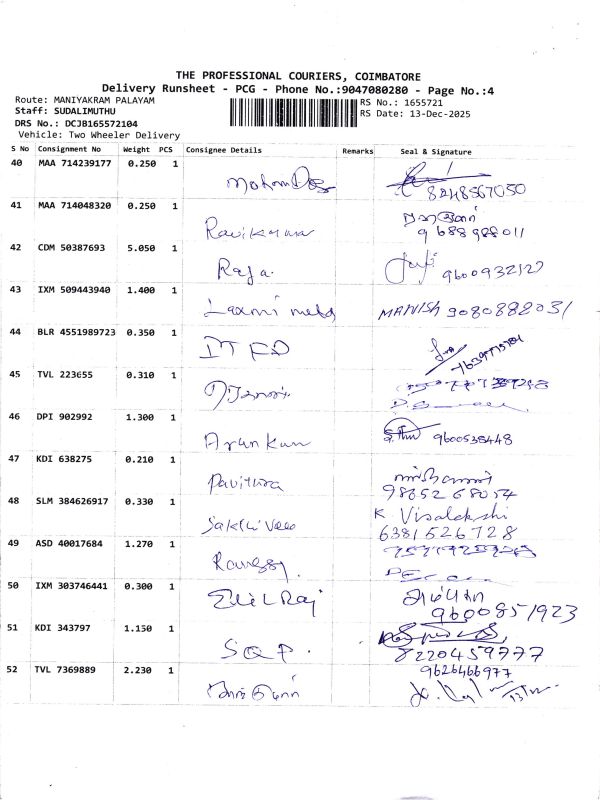 THE PROFESSIONAL COURIERS, COIMBATORE
Delivery Runsheet - PCG - Phone No.:9047080280 - Page No.:4
Route: MANIYAKRAM PALAYAM
Staff: SUDALIMUTHU
DRS No.: DCJB165572104
Vehicle: Two Wheeler Delivery
RS No.: 1655721
RS Date: 13-Dec-2025
S No Consignment No Weight PCS Consignee Details Remarks Seal & Signature
40 MAA 714239177 0.250 1
8248567050
41 MAA 714048320 0.250 1
Ravikumar 9688988011
42 CDM 50387693 5.050 1
Raja. 9600932127
43 IXM 509443940 1.400 1
Laxmi metal MANISH 9080882031
44 BLR 4551989723 0.350 1
45 TVL 223655 0.310 1
46 DPI 902992 1.300 1
Arunkum 9600538448
47 KDI 638275 0.210 1
Pavithra 9865268054
48 SLM 384626917 0.330 1
Sakthi Veee K Visalakshi
6381526728
49 ASD 40017684 1.270 1
50 IXM 303746441 0.300 1
Ehil Raj 9600851923
51 KDI 343797 1.150 1
S Q P. 8220459777
52 TVL 7369889 2.230 1
9626466977